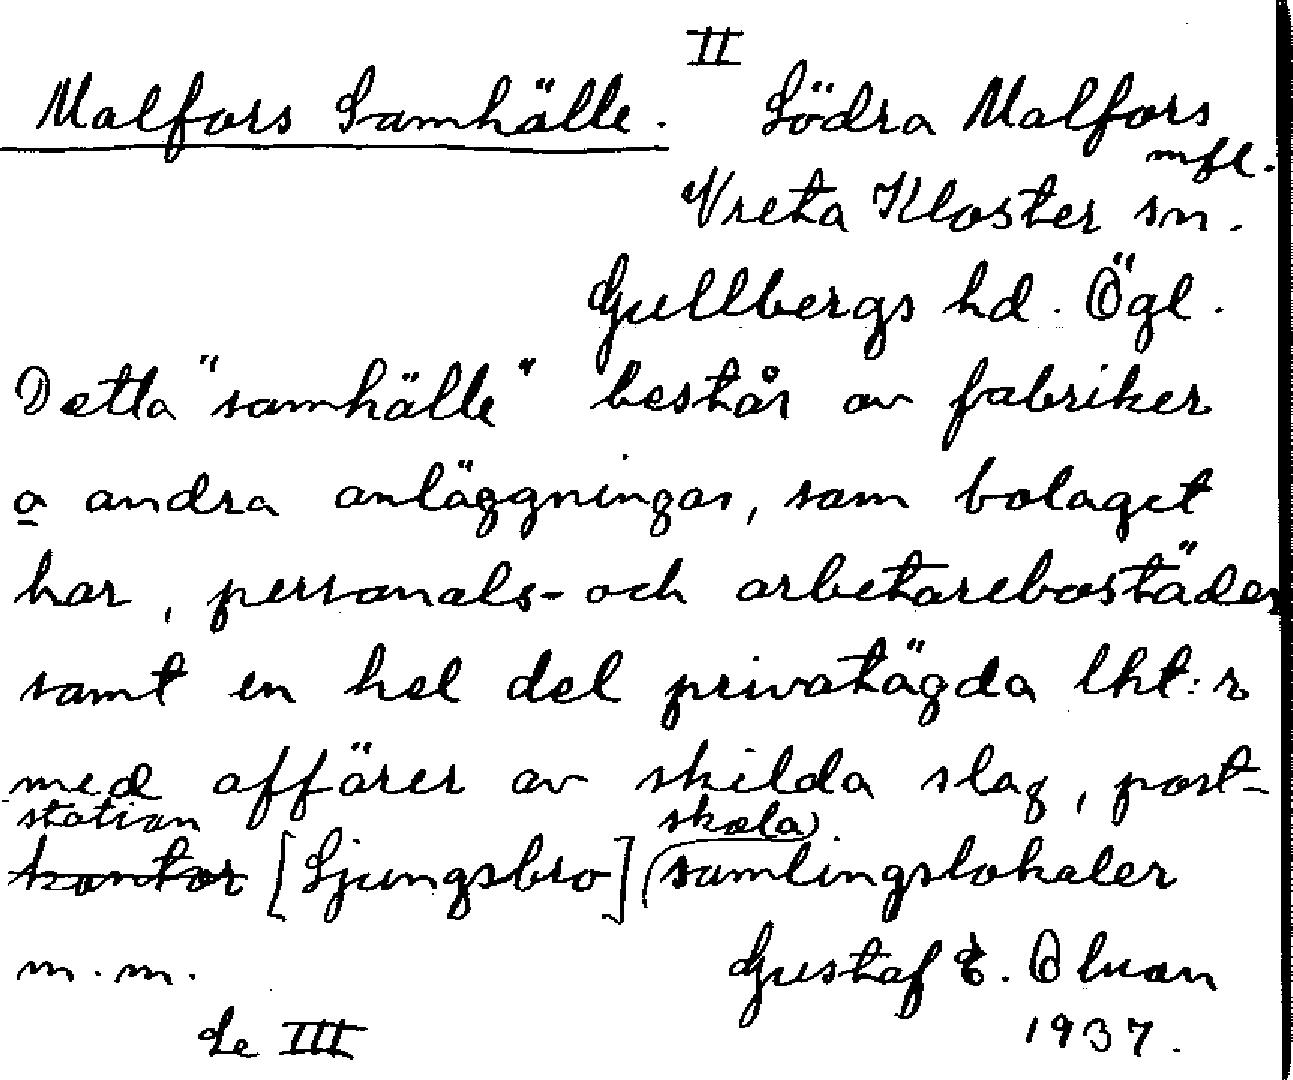 II
Malfors Samhälle. Södra Malfors
mfl.
Vreta Kloster sn.
Gullbergs hd. Ögl.
Detta "samhälle" består av fabriker
o andra anläggningar, som bolaget
har, personals- och arbetarebostäder
samt en hel del privatägda lht:r
med affärer av skilda slag, post-
station skola
kontor [Ljungsbro] samlingslokaler
m.m. Gustaf E. Olson
Se III 1937.